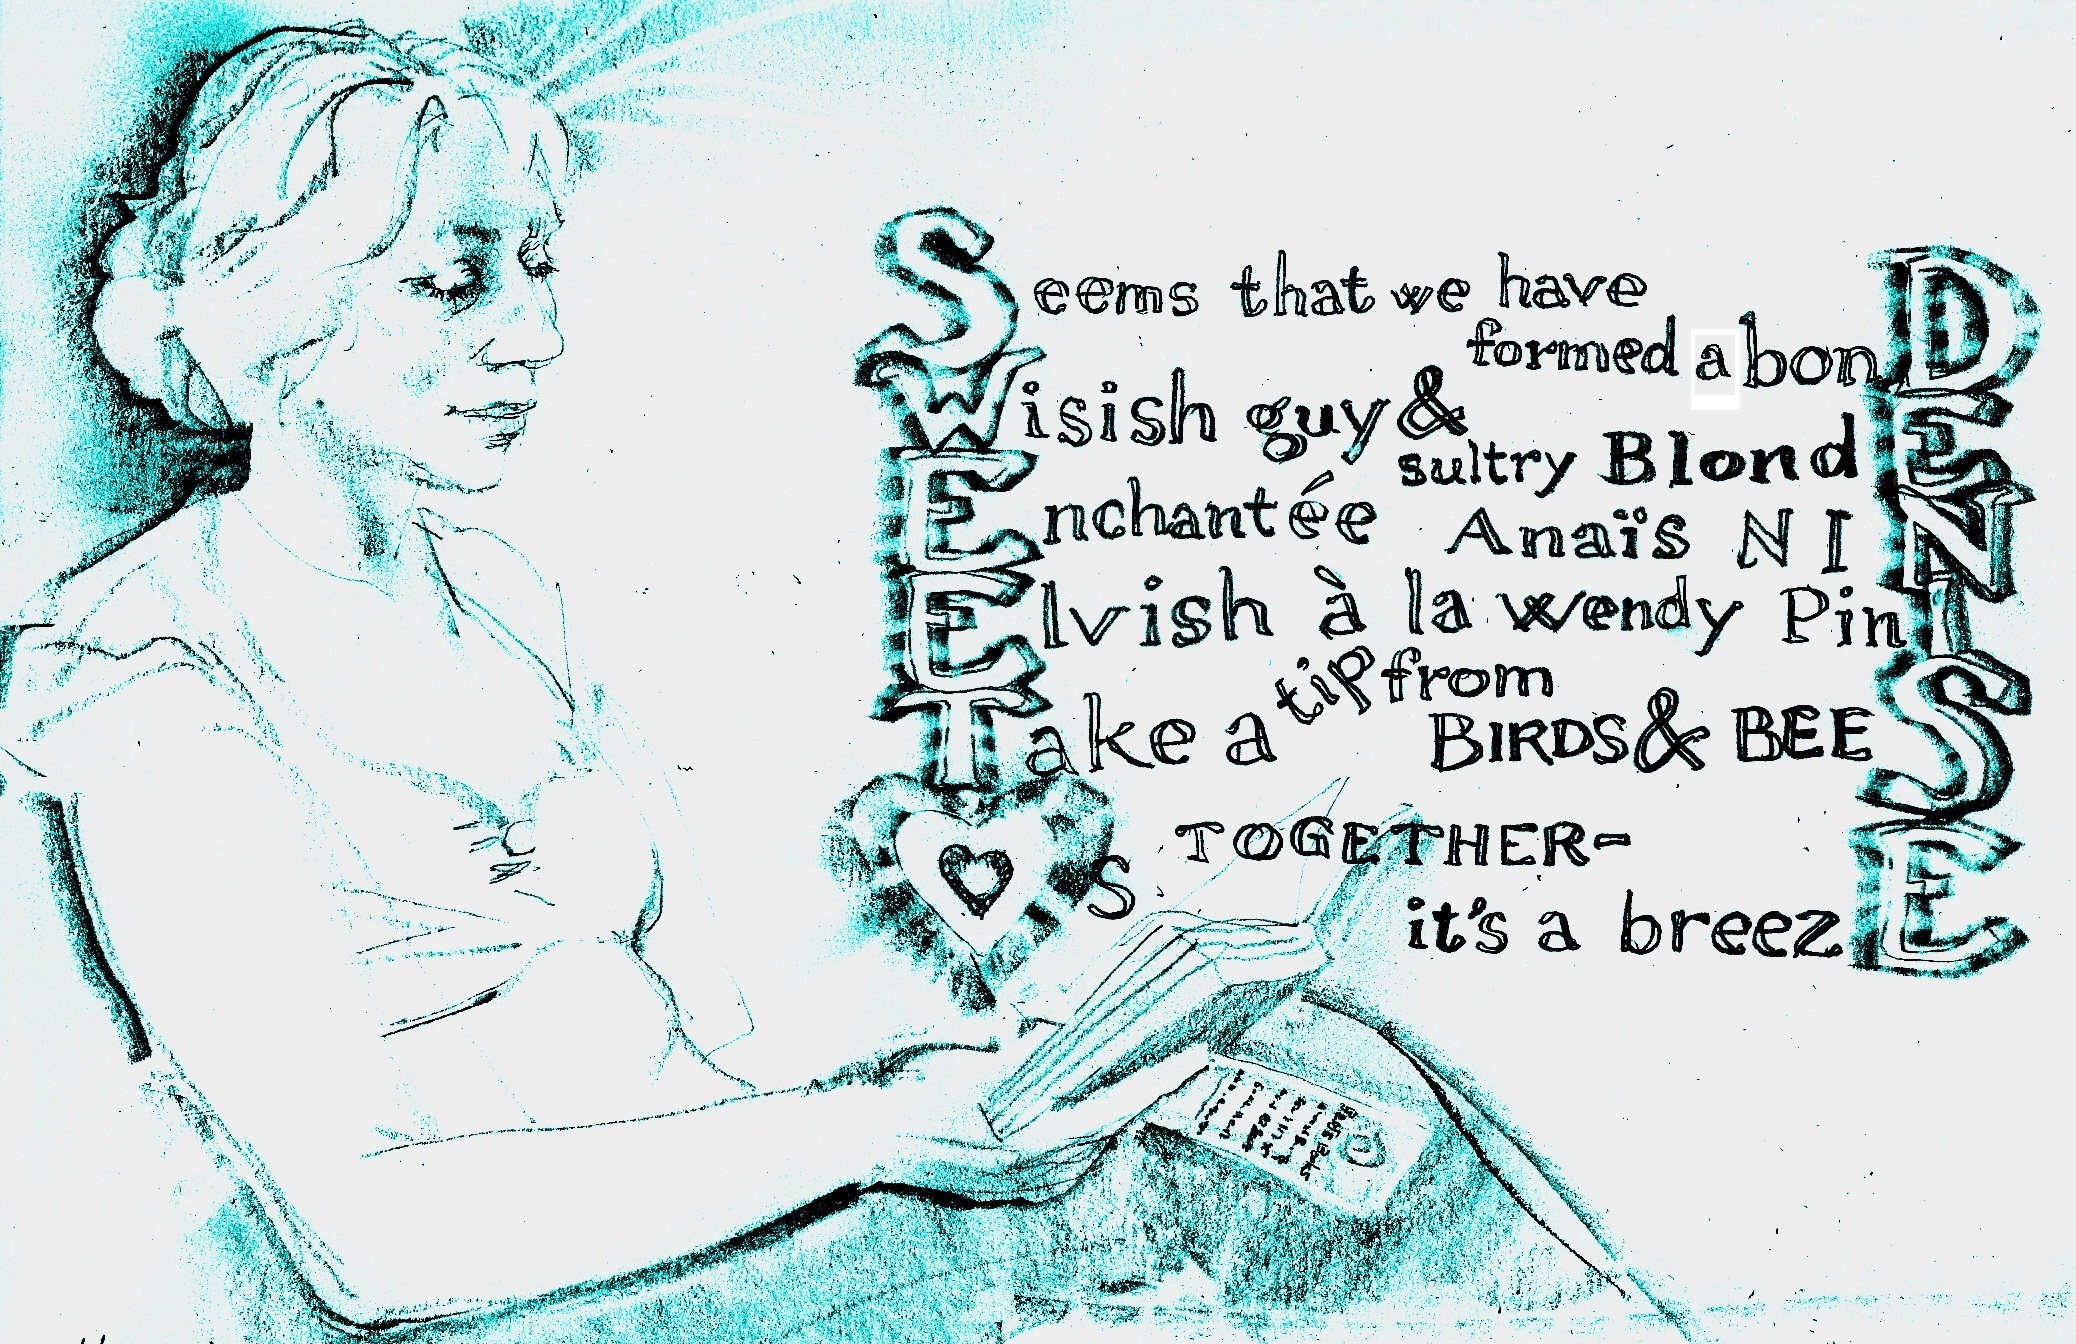 Seems that we have
formed a bonD
Wisish guy &
sultry BlondE
Enchantée Anaïs NIN
Elvish à la Wendy PinI
Take a tip from
BIRDS & BEES
♥s TOGETHER-
it's a breezE